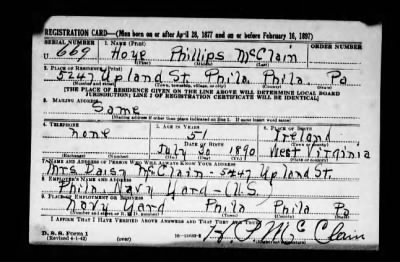 REGISTRATION CARD—(Men born on or after April 28, 1877 and on or before February 16, 1897)
SERIAL NUMBER 1. NAME (Print) ORDER NUMBER
U 669 Hoye Phillips McClain
(First) (Middle) (Last)
2. PLACE OF RESIDENCE (Print)
5247 Upland St. Phila. Phila. Pa
(Number and street) (Town, township, village, or city) (County) (State)
[THE PLACE OF RESIDENCE GIVEN ON THE LINE ABOVE WILL DETERMINE LOCAL BOARD
JURISDICTION; LINE 2 OF REGISTRATION CERTIFICATE WILL BE IDENTICAL]
3. MAILING ADDRESS
Same
[Mailing address if other than place indicated on line 2. If same insert word same]
4. TELEPHONE 5. AGE IN YEARS 6. PLACE OF BIRTH
none 51 Ireland
DATE OF BIRTH (Town or county)
July 30 1890 West Virginia
(Exchange) (Number) (Mo.) (Day) (Yr.) (State or country)
7. NAME AND ADDRESS OF PERSON WHO WILL ALWAYS KNOW YOUR ADDRESS
Mrs Daisy McClain - 5247 Upland St.
8. EMPLOYER'S NAME AND ADDRESS
Phila. Navy Yard - U.S.
9. PLACE OF EMPLOYMENT OR BUSINESS
Navy Yard Phila Phila Pa
(Number and street or R. F. D. number) (Town) (County) (State)
I AFFIRM THAT I HAVE VERIFIED ABOVE ANSWERS AND THAT THEY ARE TRUE.
H. P. McClain
D. S. S. Form 1
(Revised 4-1-42) (over)